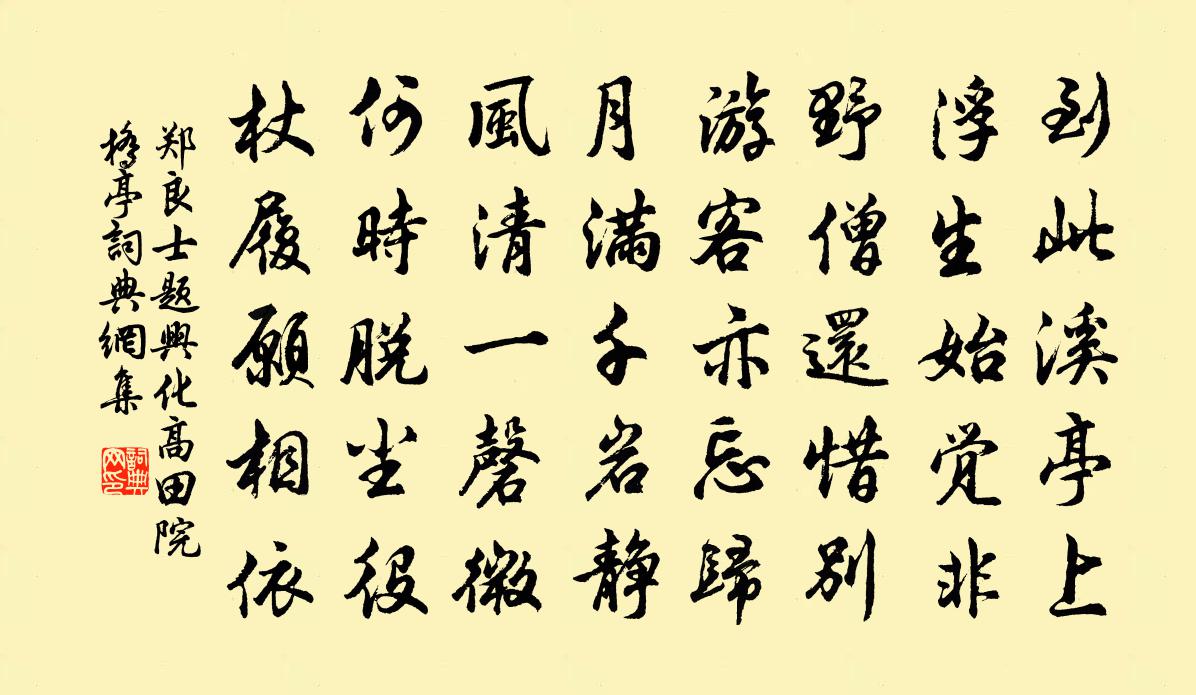 到此溪亭上
浮生始觉非
野僧還惜别
游客亦忘歸
月满千岩静
風清一磬微
何時脱尘役
杖履願相依
郑良士题興化高田院
橋亭詞典網集
詞典网印